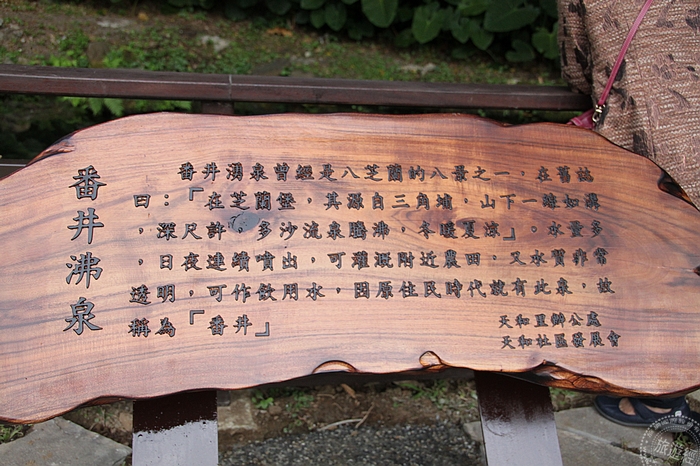 番井沸泉
番井湧泉曾經是八芝蘭的八景之一，在舊誌
曰：「在芝蘭堡，其源自三角埔，山下一隙如溪
，深尺許，多沙流泉騰沸，冬暖夏涼」。水量多
，日夜連續噴出，可灌溉附近農田，又水質非常
透明，可作飲用水，因原住民時代就有此泉，故
稱為「番井」
天和里辦公處
天和社區發展會